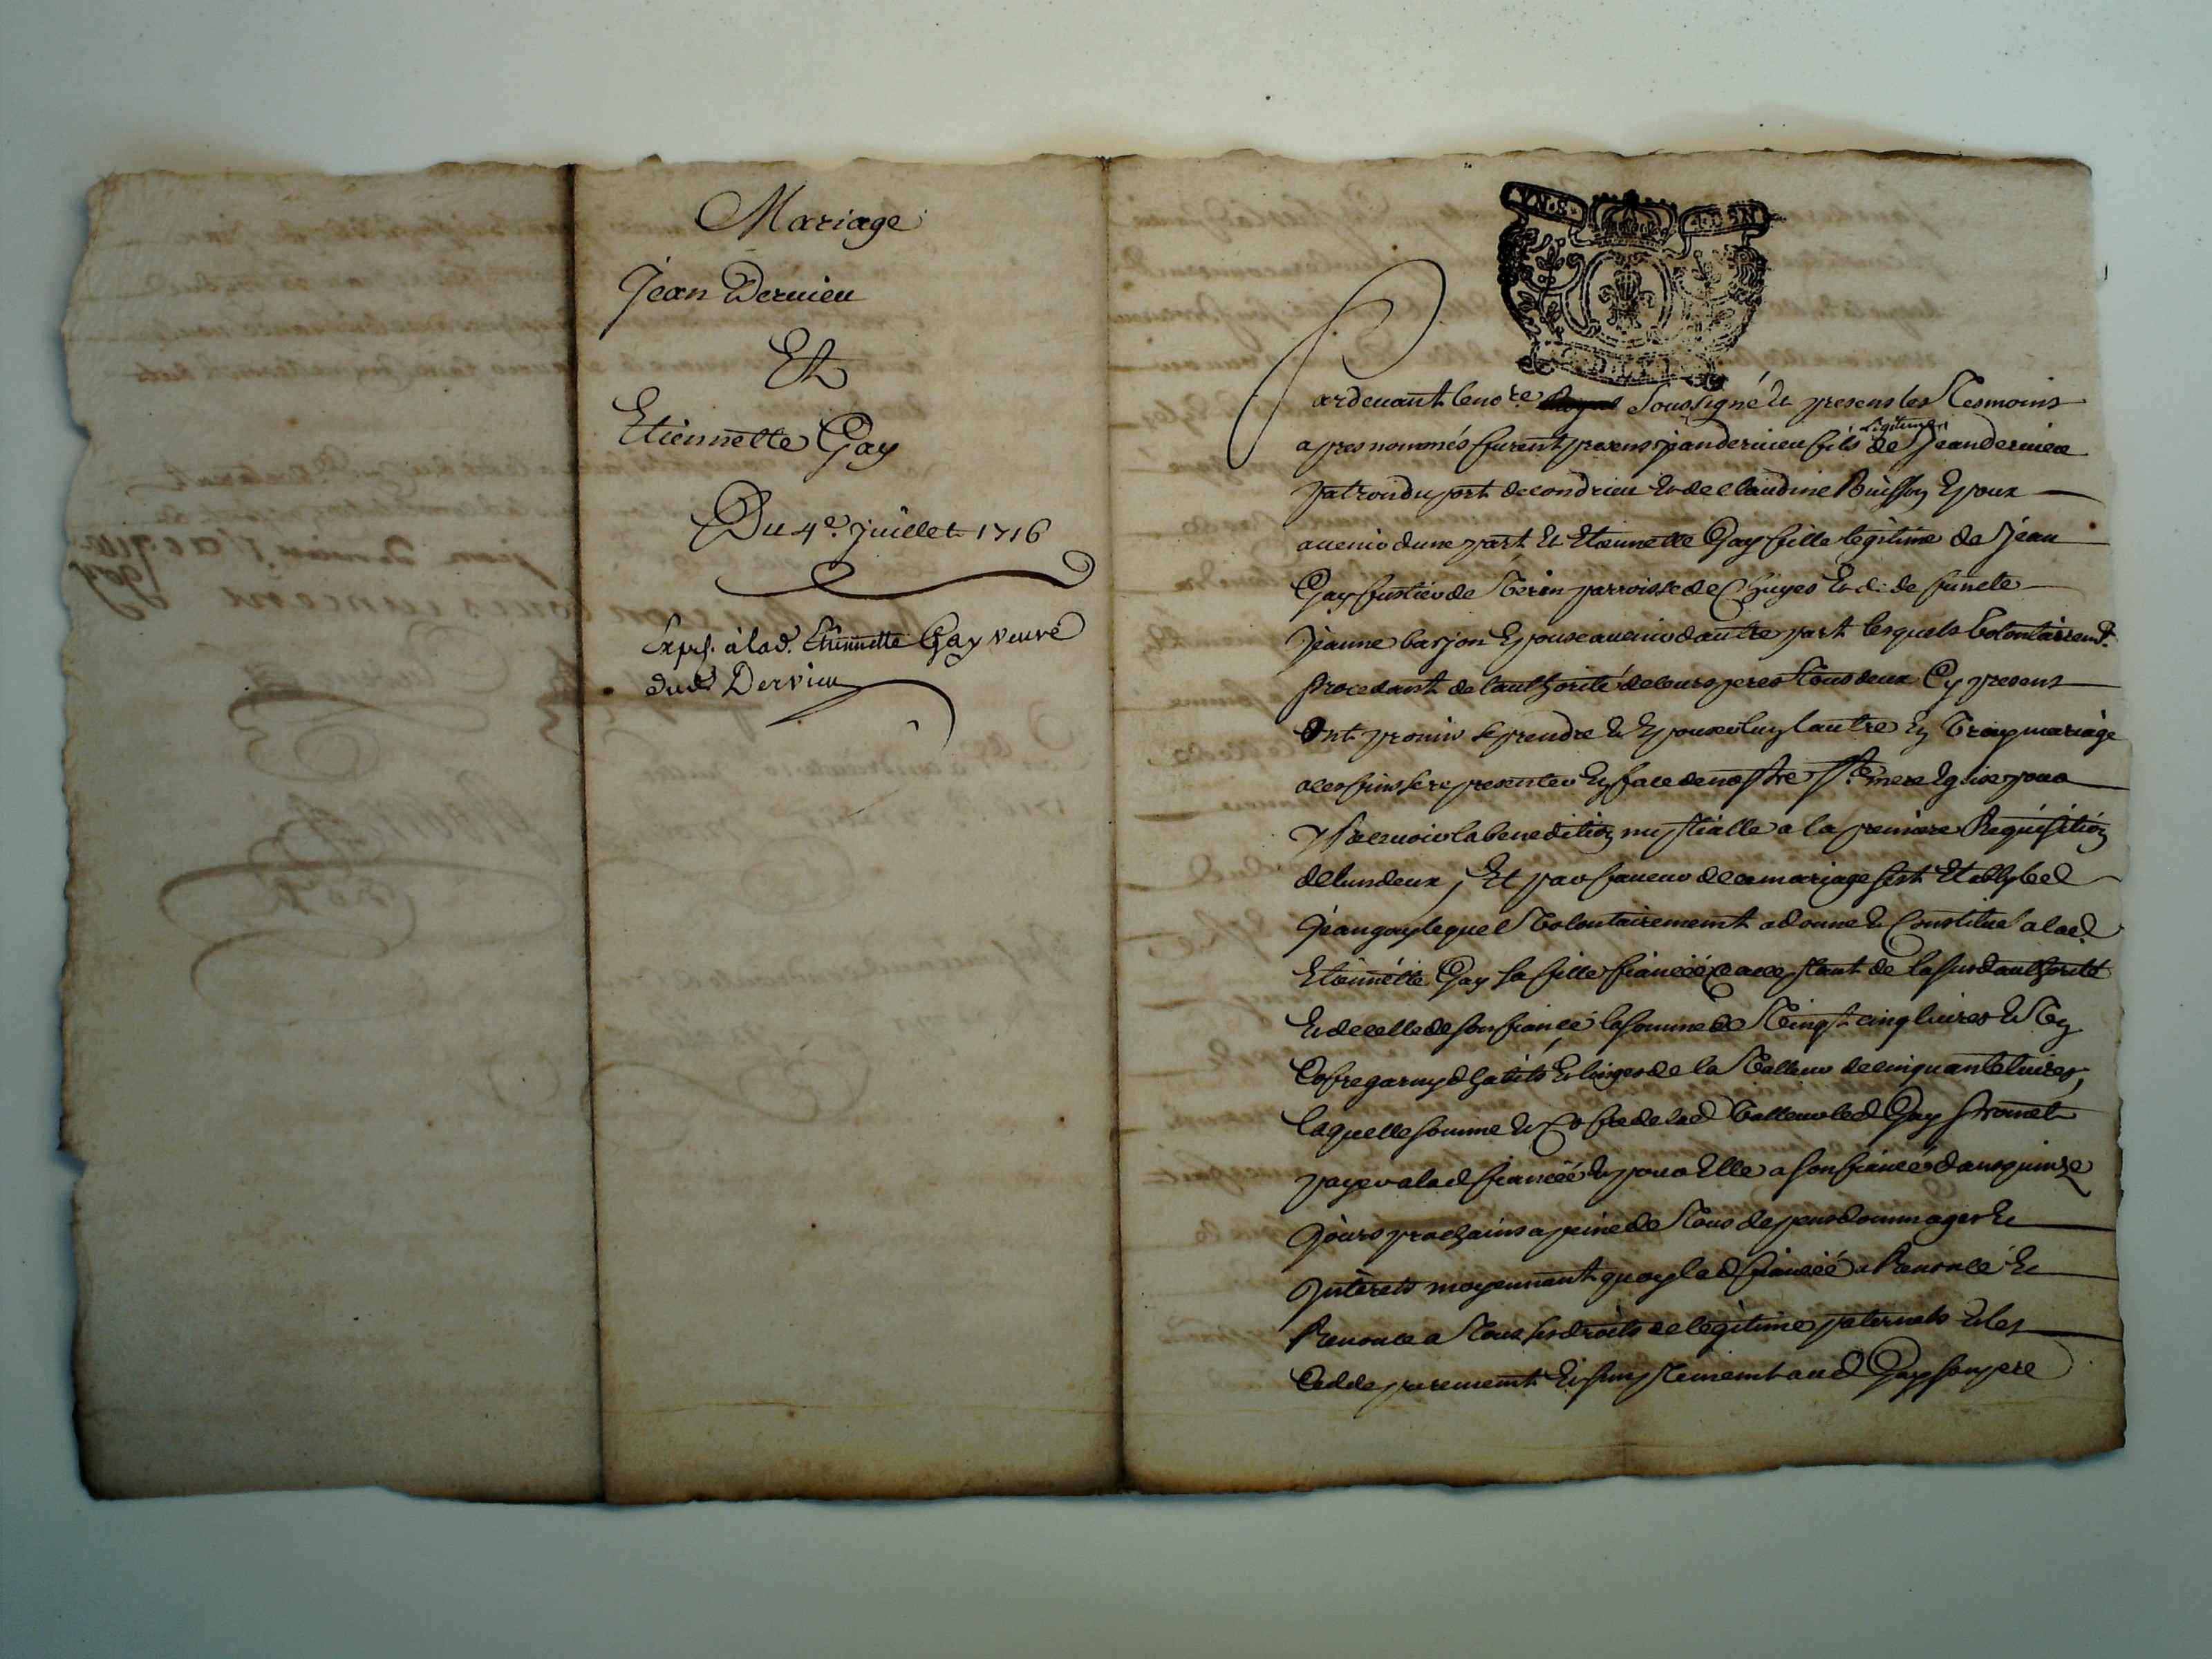 Mariage
Jean Dervieu
Et
Etiennette Gay
Du 4e. Juillet 1716
Exped. à lad. Etiennette Gay veuve
dud. Dervieu
Pardevant le no.re Royal soussigné et presens les tesmoins
apres nommés furent presens jean dervieu fils legitime de Jean dervieu
patron du port de condrieu et de Claudine Buisson Epoux
avenir dune part et Etiennette Gay fille legitime de Jean
Gay fustier de Verin parroisse de Chuyes et de defuncte
Jeanne barjon Epouse avenir dautre part lesquels volontairemt.
procedants de lauthorité de leurs peres tous deux Cy presens
Ont promis se prendre et Epouser luy lautre En vray mariage
a ces fins se representer En face de nostre Ste. mere Eglise pour
y recevoir la benedition nuptialle a la premiere Requisition
de lun deux, Et par faveur de ce mariage sest Etably led
Jean gay lequel volontairement a donne et Constitué a lad.
Etiennette Gay sa fille fiancéé acceptant de la susd authorité
et de celle de son fiancé la somme de vingt cinq livres et Un
Cofre garny dhabits et linges de la valleur de cinquante livres,
laquelle somme et Cofre de lad valleur led Gay promet
payer a lad fiancéé et pour Elle a son fiancé dans quinze
jours prochains a peine de tous depens dommages et
Interets moyennant quoy lad fiancéé a Renoncé et
Renonce a tous ses droits de legitime paternels et les
Cedde purement et simplement aud Gay son pere